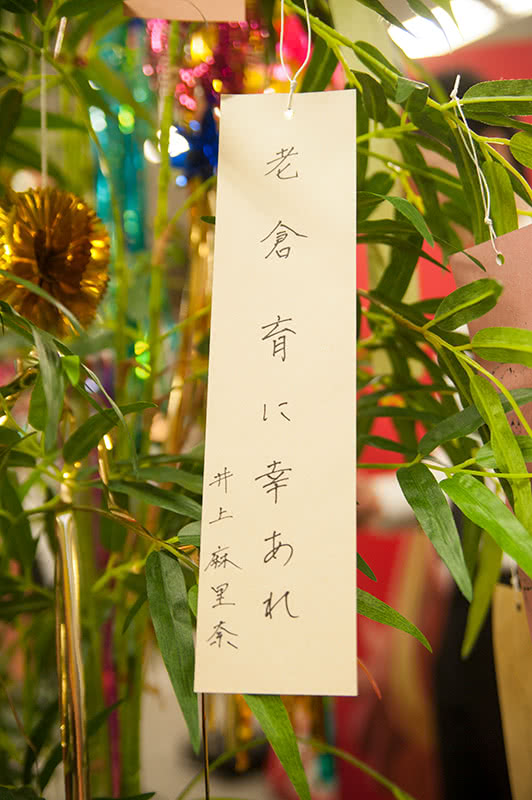 老倉育に幸あれ
井上麻里奈